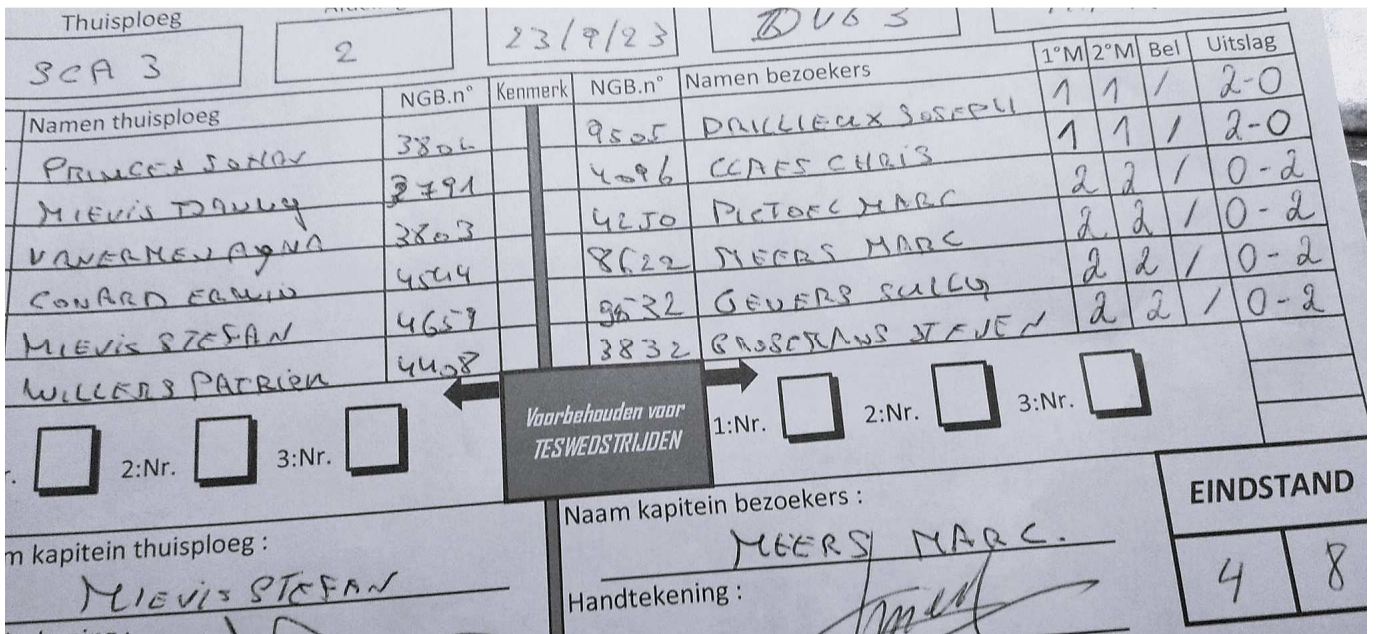 Thuisploeg
SCA 3
2
23/9/23
DUB 3
Namen thuisploeg NGB.n° Kenmerk NGB.n° Namen bezoekers 1°M 2°M Bel Uitslag
PRINCEN JOHNY 9505 DRILLIEUX JOSEPH 1 1 / 2-0
MIEVIS DANNY 3791 4096 CLAES CHRIS 1 1 / 2-0
VANERMEN 3803 4250 MARC 2 2 / 0-2
CONARD ERWIN 4544 8622 MEERS MARC 2 2 / 0-2
MIEVIS STEFAN 4659 9532 GEVERS 2 2 / 0-2
WILLEMS PATRICK 4408 3832 STEVEN 2 2 / 0-2
Voorbehouden voor
TESWEDSTRIJDEN
2:Nr. 3:Nr. 1:Nr. 2:Nr. 3:Nr.
EINDSTAND
4 8
m kapitein thuisploeg :
MIEVIS STEFAN
Naam kapitein bezoekers :
MEERS MARC.
Handtekening :